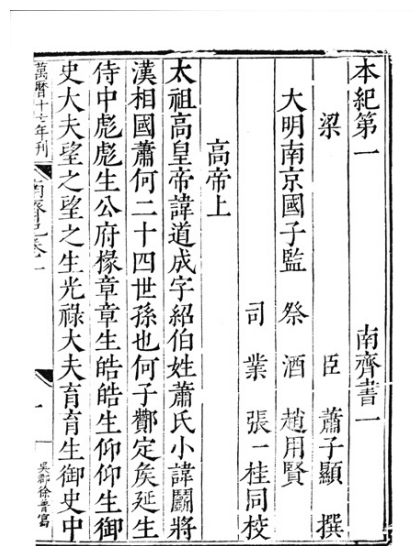 本紀第一 南齊書一
梁 臣 蕭子顯 撰
大明南京國子監 祭 酒 趙用賢
司 業 張一桂同校
高帝上
太祖高皇帝諱道成字紹伯姓蕭氏小諱鬭將
漢相國蕭何二十四世孫也何子酇定矦延生
侍中彪彪生公府掾章章生皓皓生仰仰生御
史大夫望之望之生光祿大夫育育生御史中
萬曆十七年刊 一 吳郡徐普寫